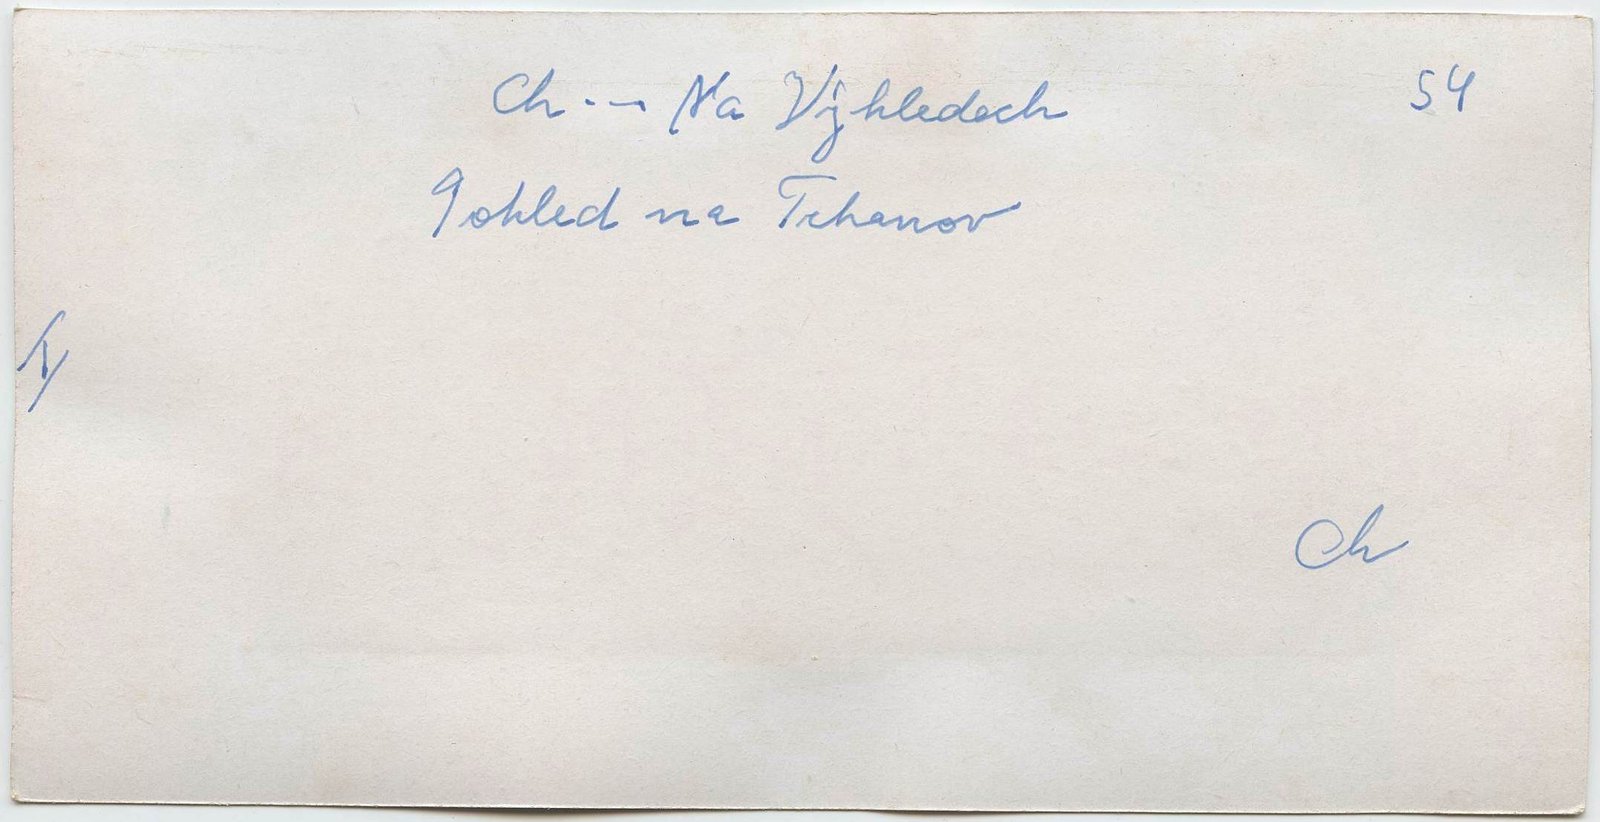 Ch - - Na Výhledech
54
Pohled na Trhanov
Ch